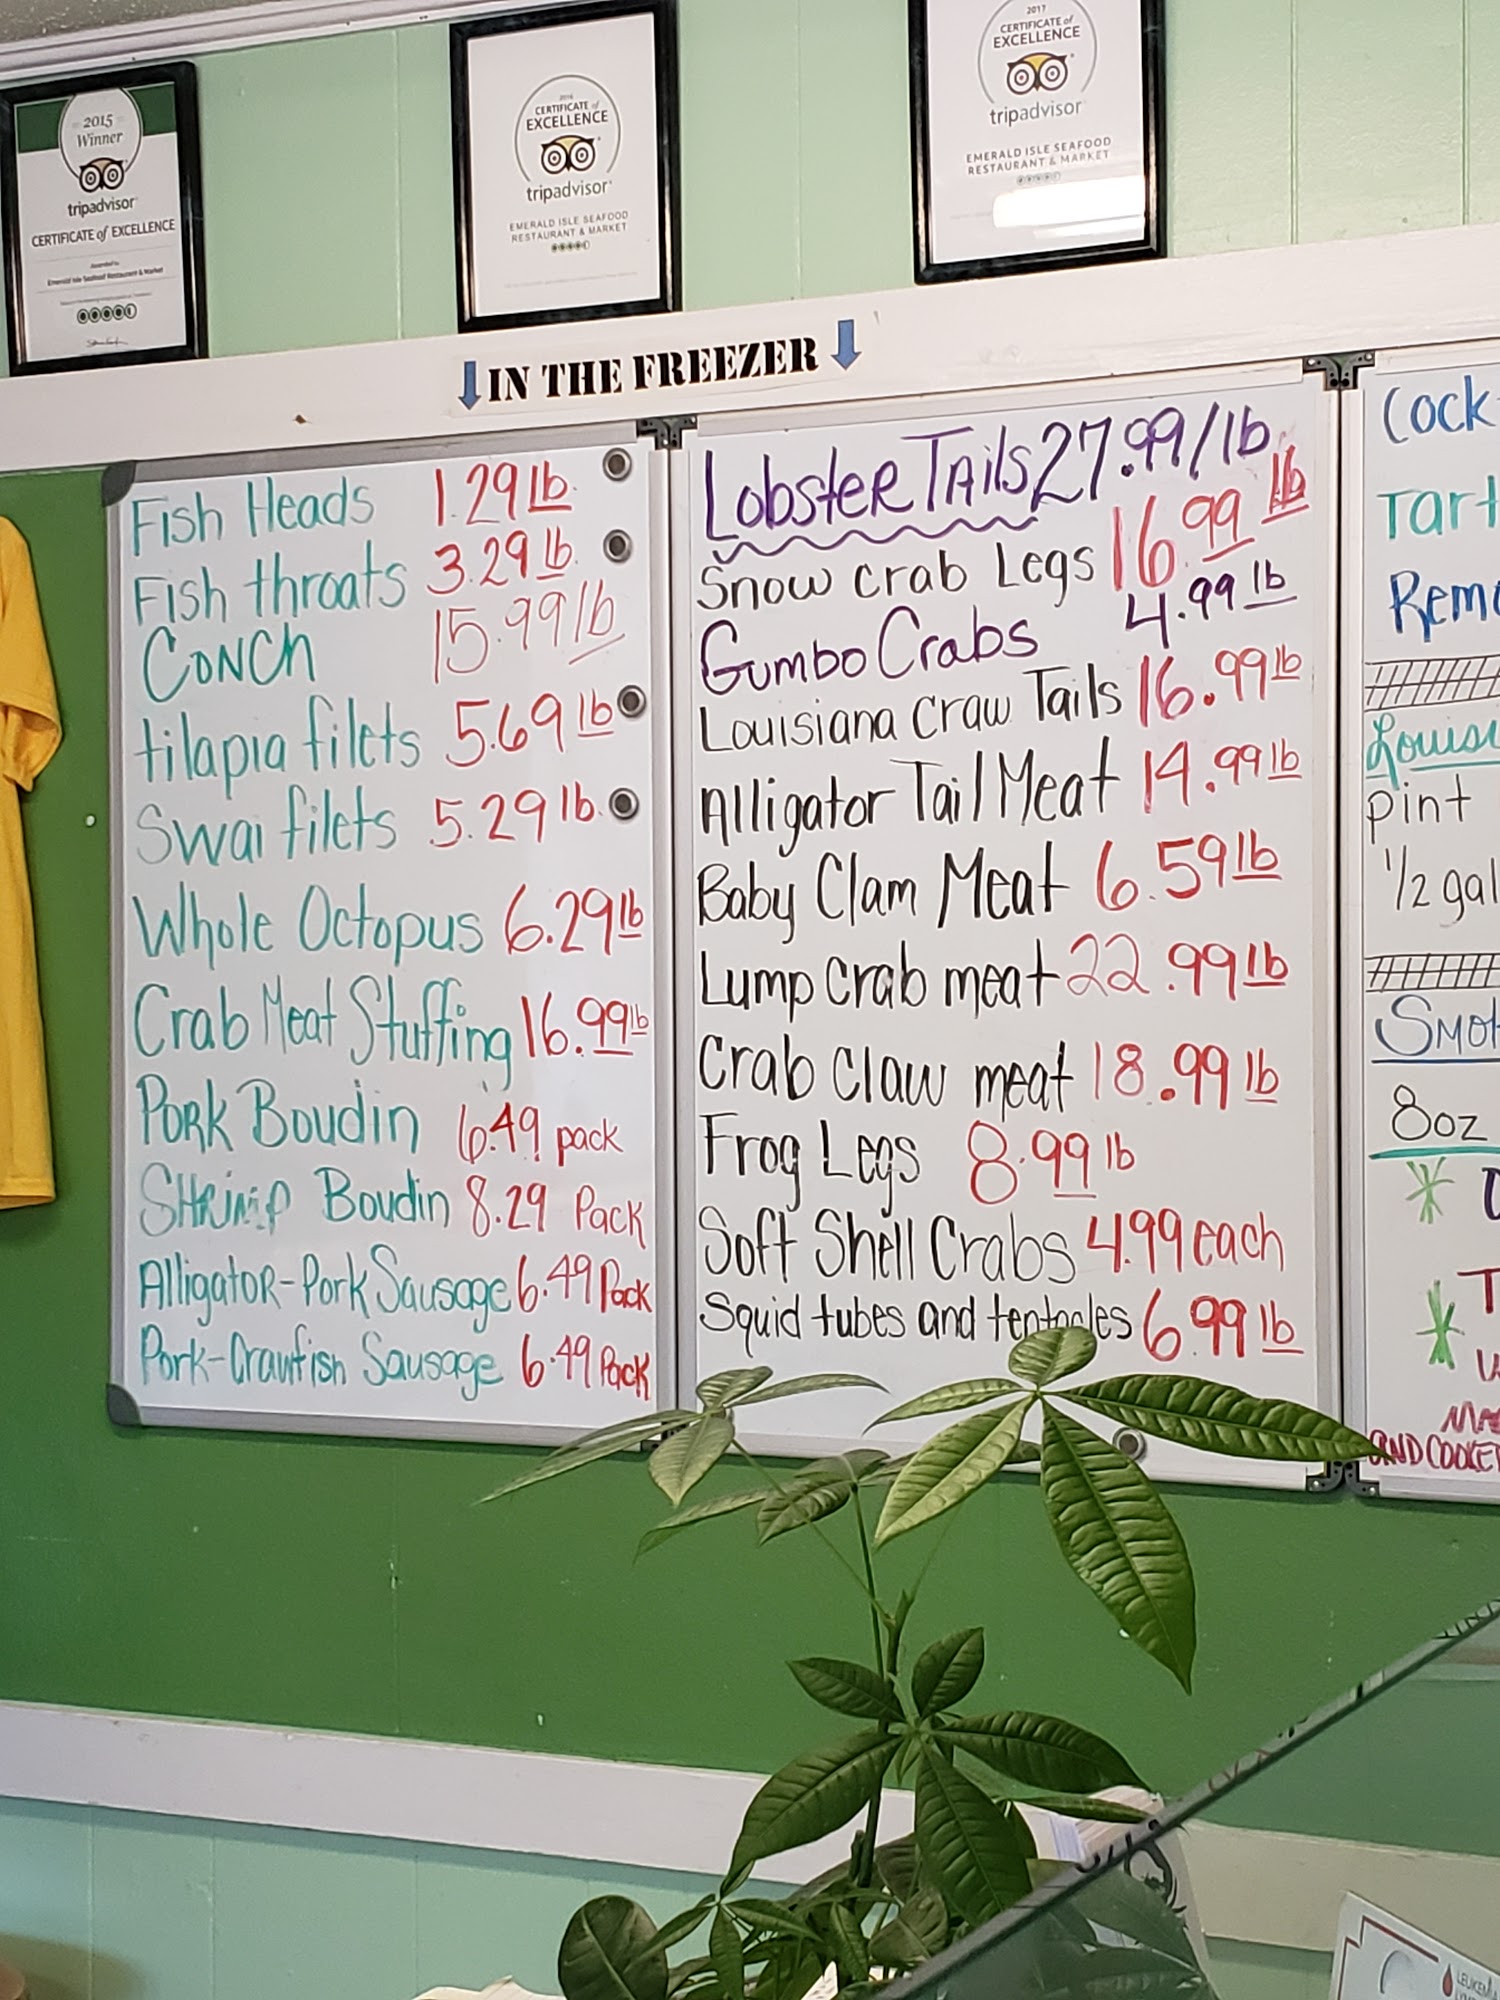 2015
Winner
tripadvisor
CERTIFICATE of EXCELLENCE
Awarded to
Emerald Isle Seafood Restaurant & Market
2016
CERTIFICATE of
EXCELLENCE
tripadvisor
EMERALD ISLE SEAFOOD
RESTAURANT & MARKET
2017
CERTIFICATE of
EXCELLENCE
tripadvisor
EMERALD ISLE SEAFOOD
RESTAURANT & MARKET
IN THE FREEZER
Fish Heads 1.29 lb.
Fish throats 3.29 lb.
CONCh 15.99 lb
tilapia filets 5.69 lb
Swai filets 5.29 lb.
Whole Octopus 6.29 lb
Crab Meat Stuffing 16.99 lb
PORK Boudin 6.49 pack
SHRIMP Boudin 8.29 Pack
Alligator-Pork Sausage 6.49 Pack
Pork-Crawfish Sausage 6.49 Pack
Lobster Tails 27.99/lb.
Snow crab Legs 16.99 lb
Gumbo Crabs 4.99 lb
Louisiana Craw Tails 16.99 lb
Alligator Tail Meat 14.99 lb
Baby Clam Meat 6.59 lb
Lump crab meat 22.99 lb
Crab Claw meat 18.99 lb
Frog Legs 8.99 lb
Soft Shell Crabs 4.99 each
Squid tubes and tentacles 6.99 lb
Cock
Tart
Remo
Louisi
pint
1/2 gal
Smok
8oz
AND COOKE
LEUKEMIA